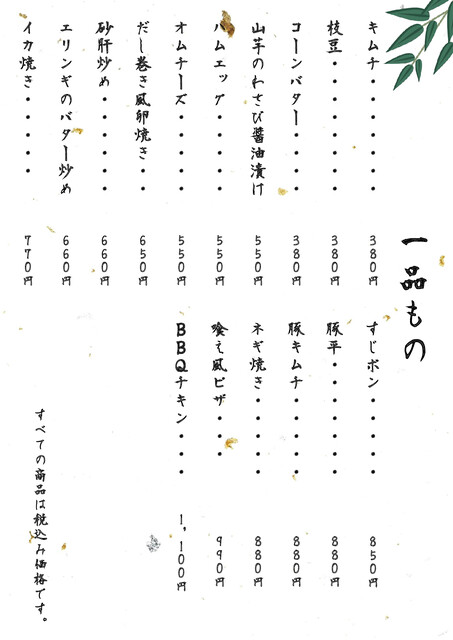 一品もの
キムチ・・・・・・・380円
枝豆・・・・・・・・380円
コーンバター・・・・380円
山芋のわさび醬油漬け 550円
ハムエッグ・・・・・550円
オムチーズ・・・・・550円
だし巻き風卵焼き・・650円
砂肝炒め・・・・・・660円
エリンギのバター炒め 660円
イカ焼き・・・・・・770円
すじポン・・・・・850円
豚平・・・・・・・880円
豚キムチ・・・・・880円
ネギ焼き・・・・・880円
喰え風ピザ・・・・990円
BBQチキン・・・1,100円
すべての商品は税込み価格です。